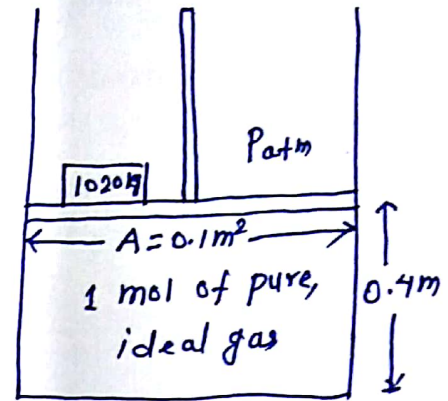 Patm
1020kg
A=0.1m²
1 mol of pure,
0.4m
ideal gas